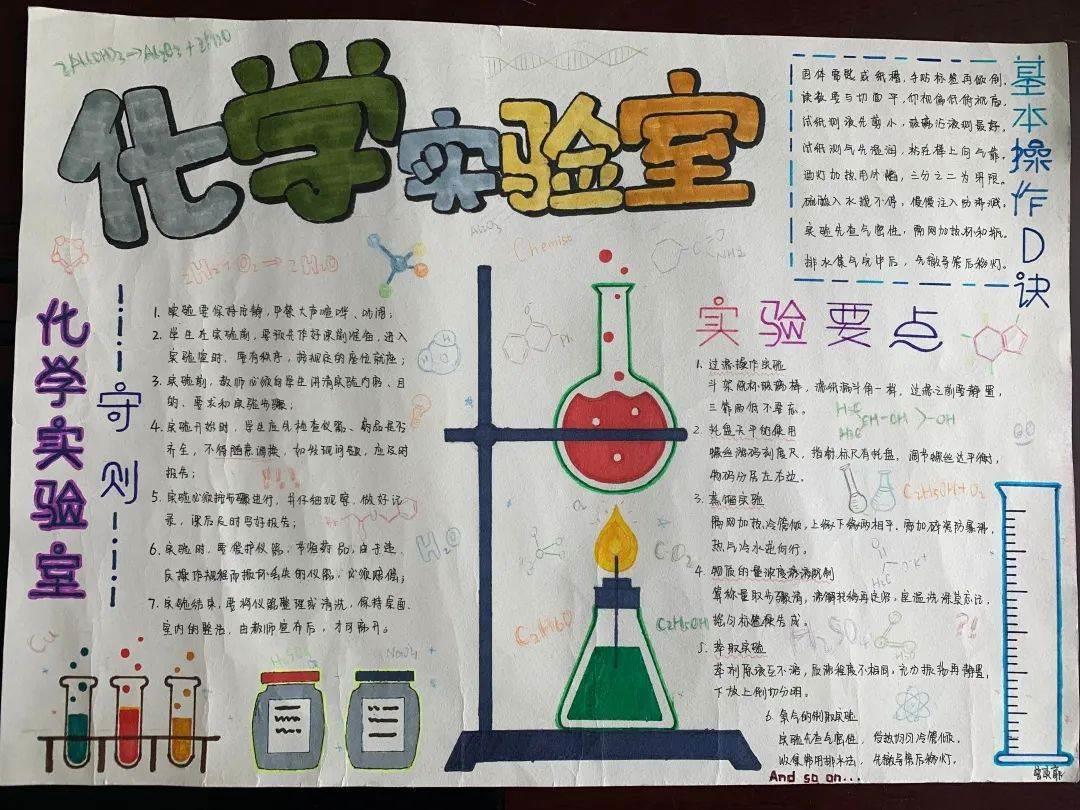 化学实验室
基本操作口诀
固体需匙或纸槽，手防标签再倾倒。
读数要与切面平，仰视偏低俯视高。
试纸测液先剪小，玻棒沾液测最好。
试纸测气先湿润，粘在棒上向气靠。
酒灯加热用外焰，三分之二为界限。
硫酸入水搅不停，慢慢注入防沸溅。
实验先查气密性，隔网加热杯和瓶。
排水集气完毕后，先撤导管后移灯。
化学实验室
守则
1. 实验要保持安静，严禁大声喧哗、吵闹；
2. 学生在实验前，要预先作好课前准备，进入
实验室时，要有秩序，按规定的座位就座；
3. 实验前，教师必须向学生讲清实验内容、目
的、要求和实验步骤；
4. 实验开始时，学生应先检查仪器、药品是否
齐全，不得随意调换，如发现问题，应及时
报告；
5. 实验必须按步骤进行，并仔细观察，做好记
录，课后及时写好报告；
6. 实验时，要爱护仪器，节约药品，由于违
反操作规程而损坏丢失的仪器，必须赔偿；
7. 实验结束，要将仪器整理或清洗，保持桌面、
室内的整洁，由教师宣布后，才可离开。
实验要点
1. 过滤操作实验
斗架烧杯玻璃棒，滤纸漏斗角一样。过滤之前要静置，
三靠两低不要忘。
2. 托盘天平的使用
螺丝游码刻度尺，指针标尺有托盘。调节螺丝达平衡，
物码分居左右边。
3. 蒸馏实验
隔网加热冷管倾，上缘下缘两相平。需加碎瓷防暴沸，
热气冷水逆向行。
4. 物质的量浓度溶液配制
算称量取步骤清，溶解转移再定容。室温洗涤莫忘记，
摇匀标签便告成。
5. 萃取实验
萃剂原液互不溶，质溶程度不相同。充分振荡再静置，
下放上倒切分明。
6. 氧气的制取实验
实验先查气密性，受热均匀冷管倾。
收集常用排水法，先撤导管后移灯。
And so on...
2H₂+O₂→2H₂O
Al₂O₃
NH₂
H₂O
O₂
CO₂
C₂H₅OH
C₂H₅OH+O₂
H₂SO₄
Cu
H₂SO₄